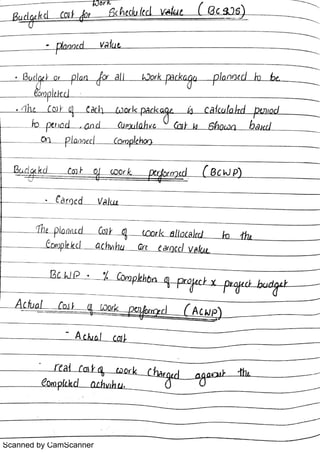 Work
Budgeted cost for Scheduled value (BCWS)
- planned value
• Budget or plan for all work package planned to be
completed
• The Cost of each work package is calculated period
to period, and cumulative Cost is shown based
on planned completion
Budgeted cost of work performed (BCWP)
• Earned Value
The planned Cost of work allocated to the
Completed activities are earned value.
BCWP = % Completion of project x project budget
Actual Cost of work performed (ACWP)
- Actual cost
• real cost of work Charged against the
Completed activities.
Scanned by CamScanner